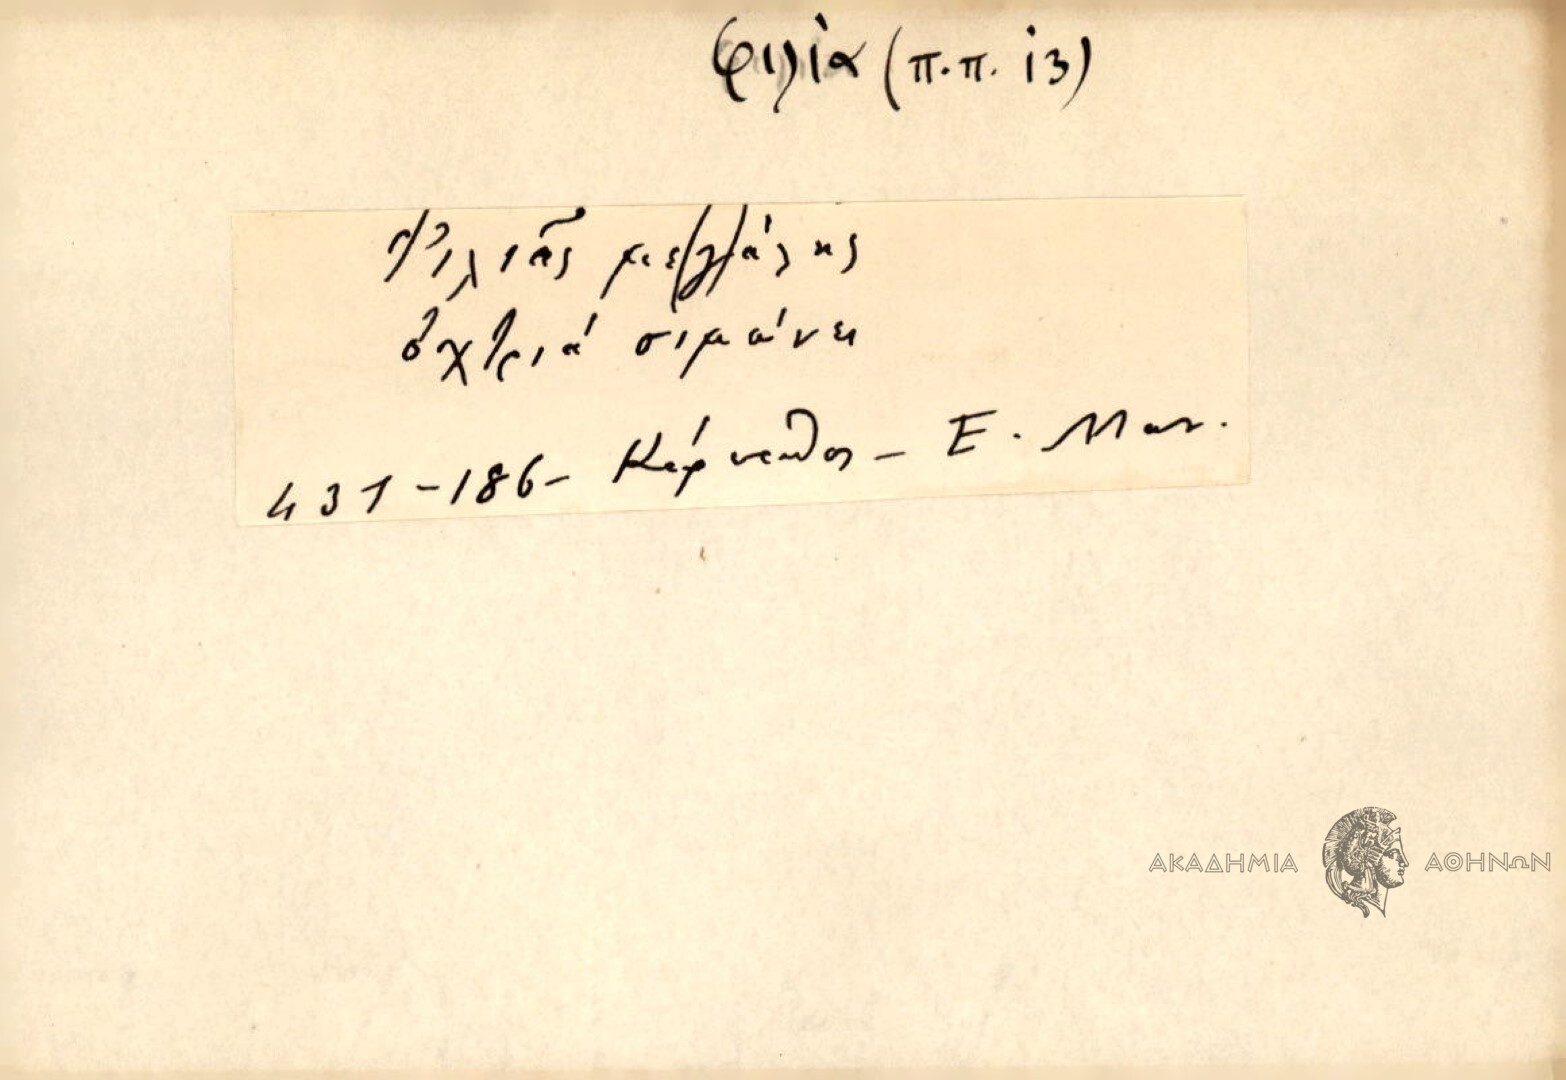 φιλία (π.π. ι3)
Φιλιᾶς με(γ)άλης
ὀχτριά σιμώνει
431-186- Κάρπαθος - Ε. Μαν.
ΑΚΑΔΗΜΙΑ ΑΘΗΝΩΝ